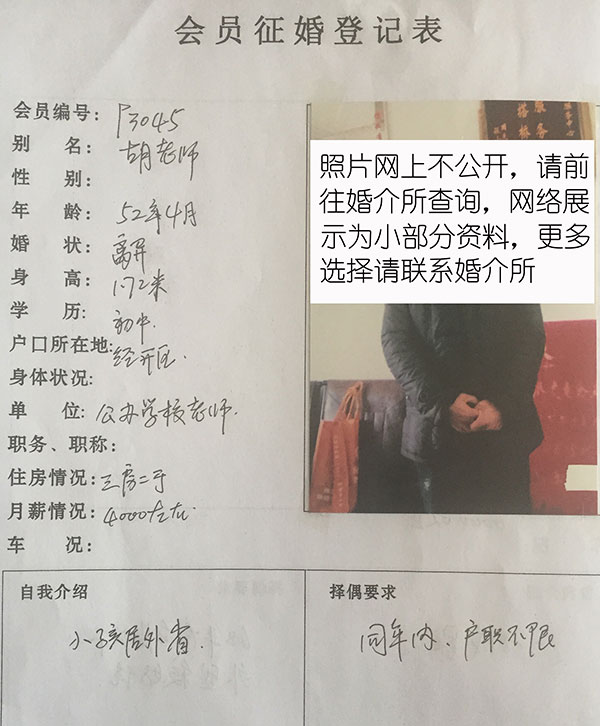 会员征婚登记表
会员编号：P3045
别 名：胡老师
性 别：
年 龄：52年4月
婚 状：离异
身 高：172米
学 历：初中.
户口所在地：经开区.
身体状况：
单 位：公办学校老师.
职务、职称：
住房情况：三房二厅
月薪情况：4000左右
车 况：
照片网上不公开，请前
往婚介所查询，网络展
示为小部分资料，更多
选择请联系婚介所
自我介绍
小孩居外省.
择偶要求
同年内、户职不限